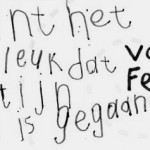 nt het
leuk dat
tijn
is gegaan
vo
Fe